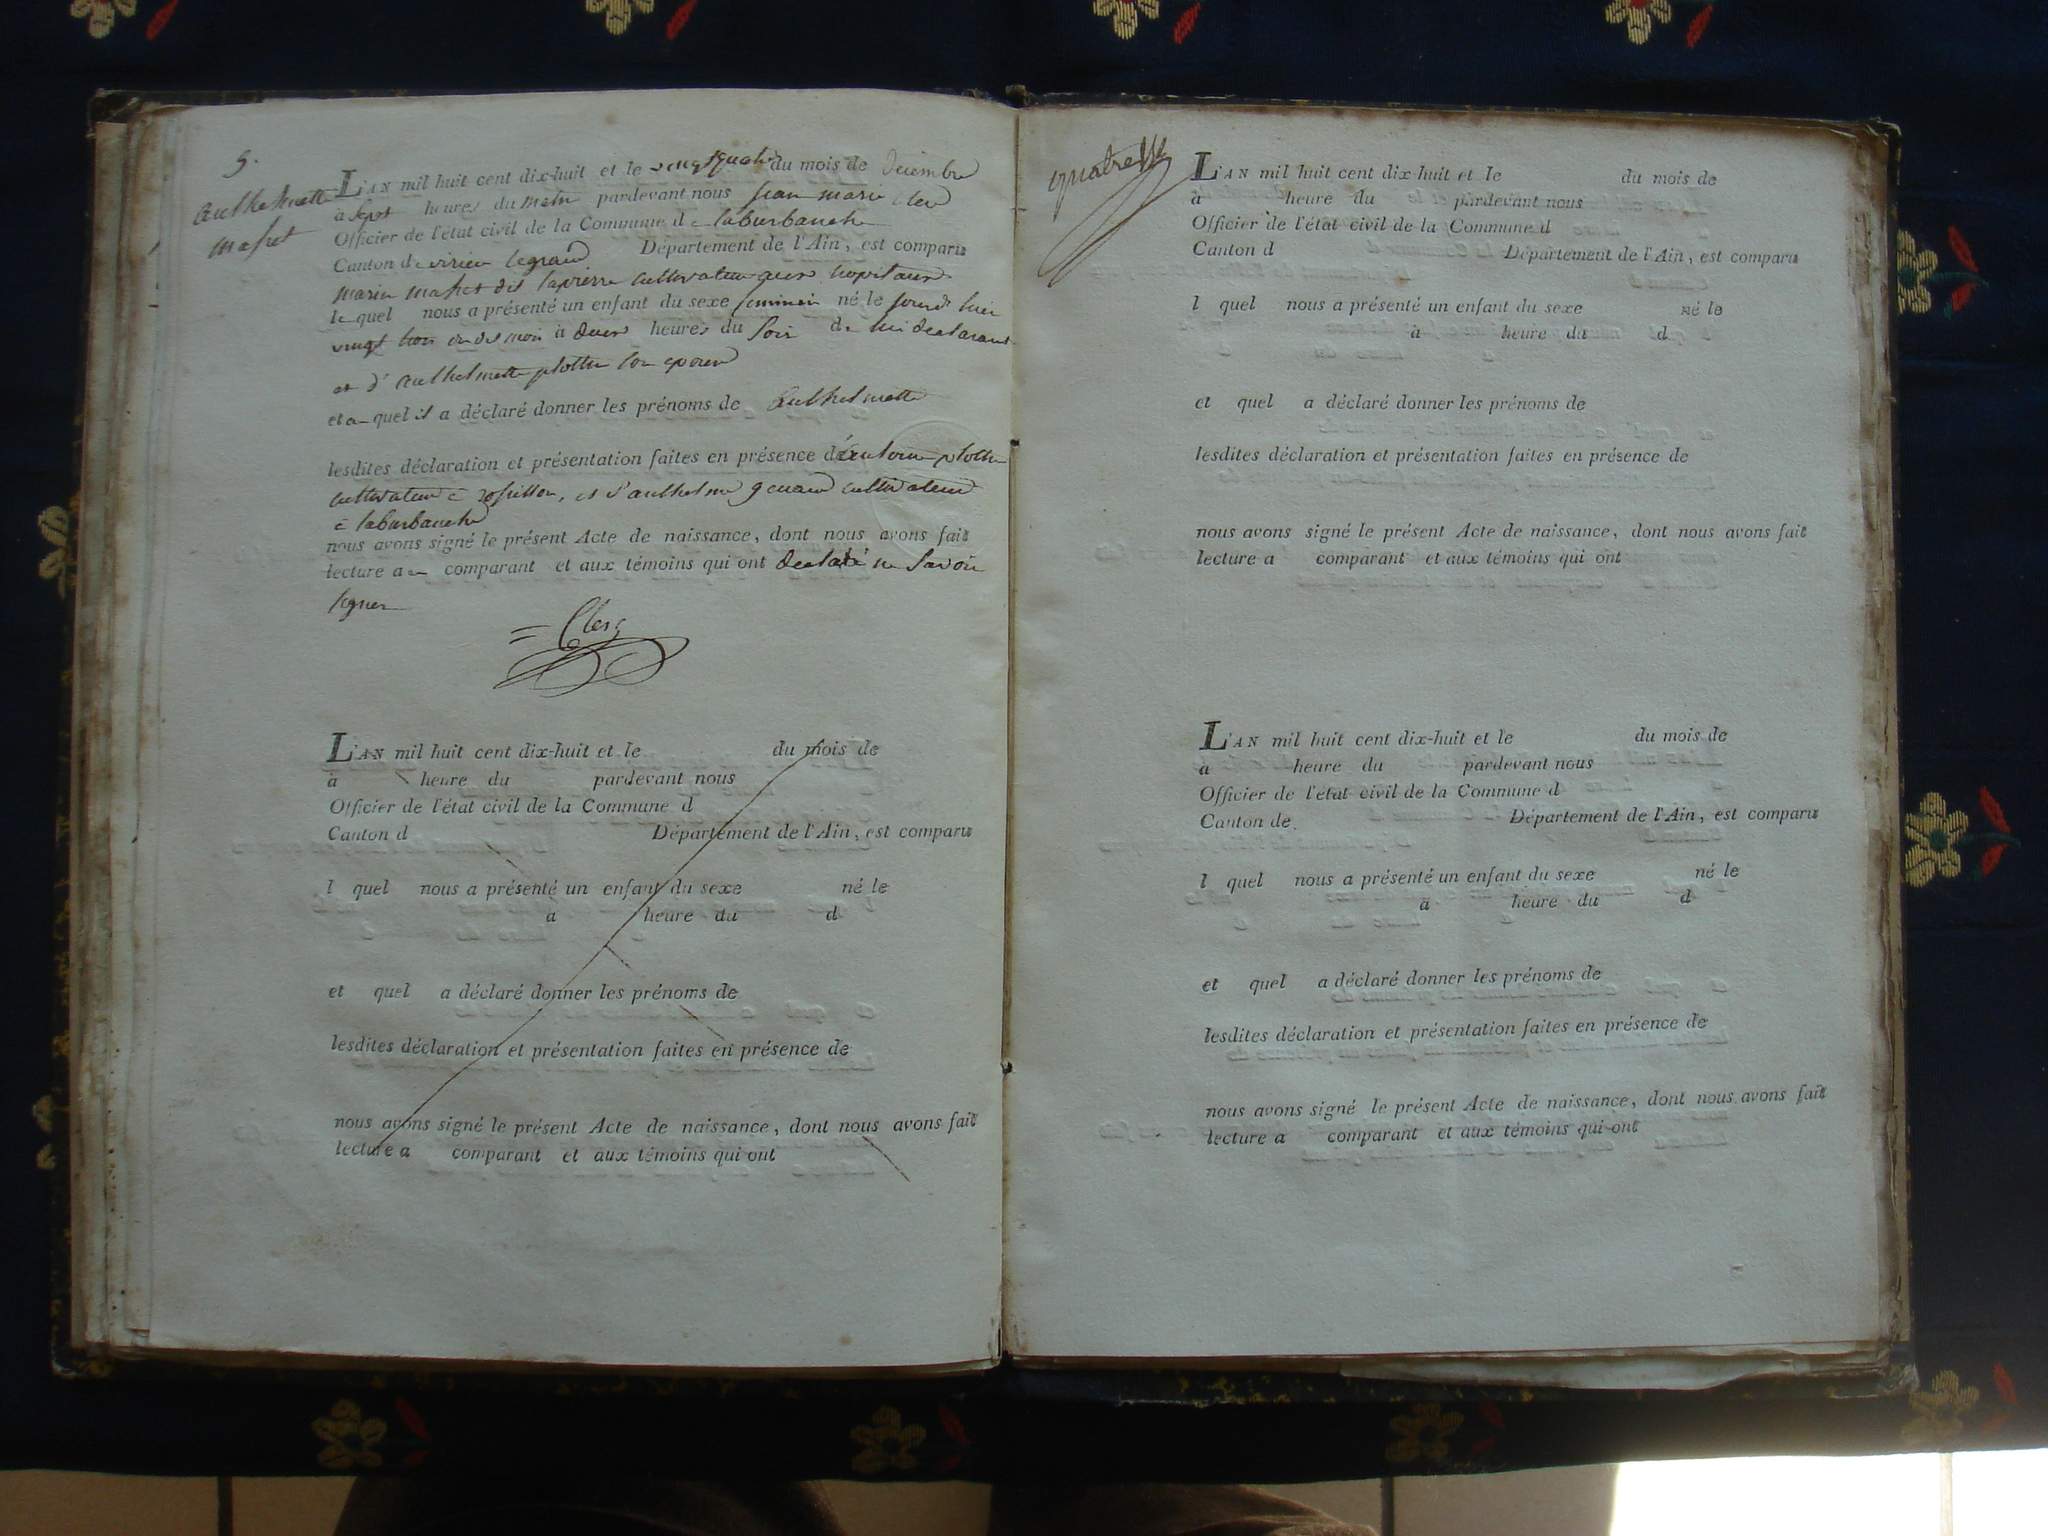 5.
L'AN mil huit cent dix-huit et le vingt quatre du mois de Décembre
anthelmette
à sept heures du matin pardevant nous jean marie clerc
masset
Officier de l'état civil de la Commune de laburbanche
Canton de virieu legrand Département de l'Ain, est comparu
marin masset dit lapierre cultivateur aux hopitaux
lequel nous a présenté un enfant du sexe feminin né le jourd'hier
vingt trois du mois à deux heures du soir de lui declarant
et d'anthelmette plottu son epouse
et auquel il a déclaré donner les prénoms de anthelmette
lesdites déclaration et présentation faites en présence d'antoine plottu
cultivateur à rossillon, et d'anthelme cultivateur
à laburbanche
nous avons signé le présent Acte de naissance, dont nous avons fait
lecture au comparant et aux témoins qui ont declaré ne savoir
signer
Clerc
L'AN mil huit cent dix-huit et le du mois de
à heure du pardevant nous
Officier de l'état civil de la Commune d
Canton d Département de l'Ain, est comparu
l quel nous a présenté un enfant du sexe né le
à heure du d
et quel a déclaré donner les prénoms de
lesdites déclaration et présentation faites en présence de
nous avons signé le présent Acte de naissance, dont nous avons fait
lecture a comparant et aux témoins qui ont
quatre
L'AN mil huit cent dix-huit et le du mois de
à heure du pardevant nous
Officier de l'état civil de la Commune d
Canton d Département de l'Ain, est comparu
l quel nous a présenté un enfant du sexe né le
à heure du d
et quel a déclaré donner les prénoms de
lesdites déclaration et présentation faites en présence de
nous avons signé le présent Acte de naissance, dont nous avons fait
lecture a comparant et aux témoins qui ont
L'AN mil huit cent dix-huit et le du mois de
à heure du pardevant nous
Officier de l'état civil de la Commune d
Canton de Département de l'Ain, est comparu
l quel nous a présenté un enfant du sexe né le
à heure du d
et quel a déclaré donner les prénoms de
lesdites déclaration et présentation faites en présence de
nous avons signé le présent Acte de naissance, dont nous avons fait
lecture a comparant et aux témoins qui ont